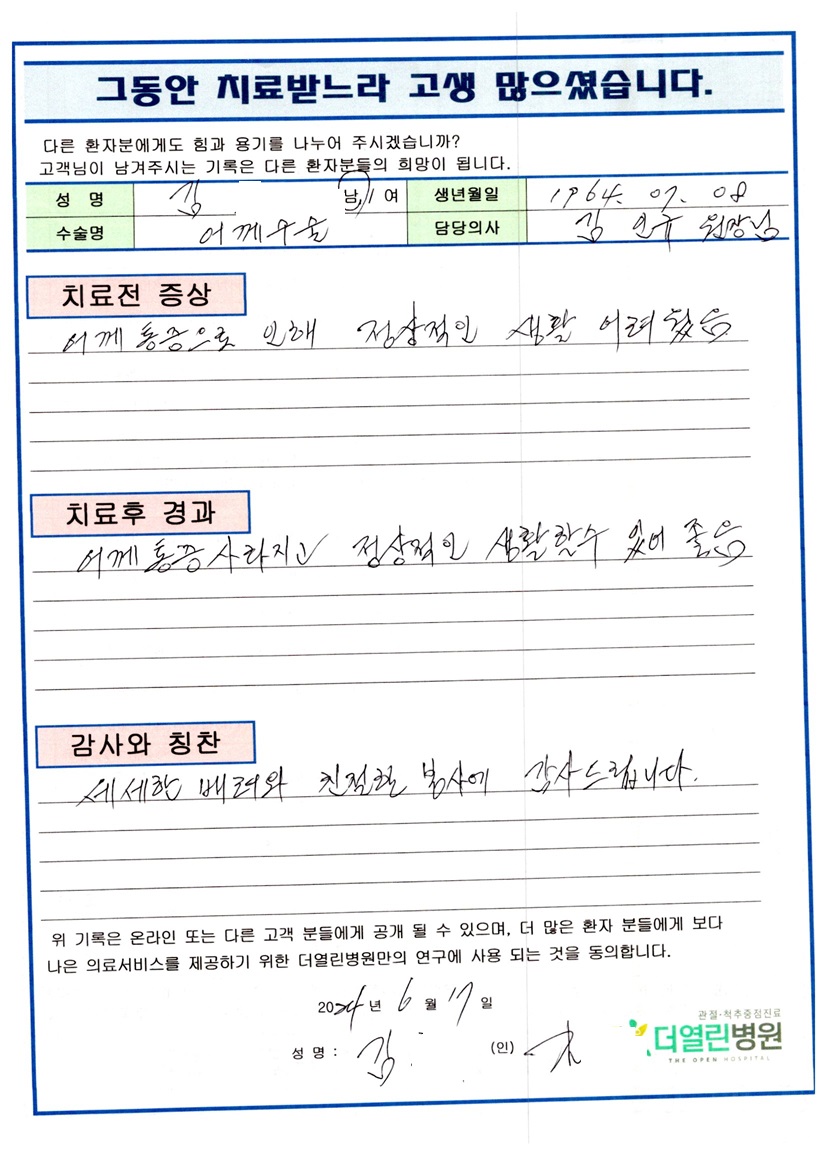 그동안 치료받느라 고생 많으셨습니다.
다른 환자분에게도 힘과 용기를 나누어 주시겠습니까?
고객님이 남겨주시는 기록은 다른 환자분들의 희망이 됩니다.
성 명 김 남 / 여 생년월일 1964. 07. 08
수술명 어께수술 담당의사 김 인규 원장님
치료전 증상
어께통증으로 인해 정상적인 생활 어려웠음
치료후 경과
어께통증사라지고 정상적인 생활할수 있어 좋음
감사와 칭찬
세세한 배려와 친절한 봉사에 감사드립니다.
위 기록은 온라인 또는 다른 고객 분들에게 공개 될 수 있으며, 더 많은 환자 분들에게 보다
나은 의료서비스를 제공하기 위한 더열린병원만의 연구에 사용 되는 것을 동의합니다.
2024년 6 월 17 일
성 명 : 김 (인)
관절·척추중점진료
더열린병원
THE OPEN HOSPITAL